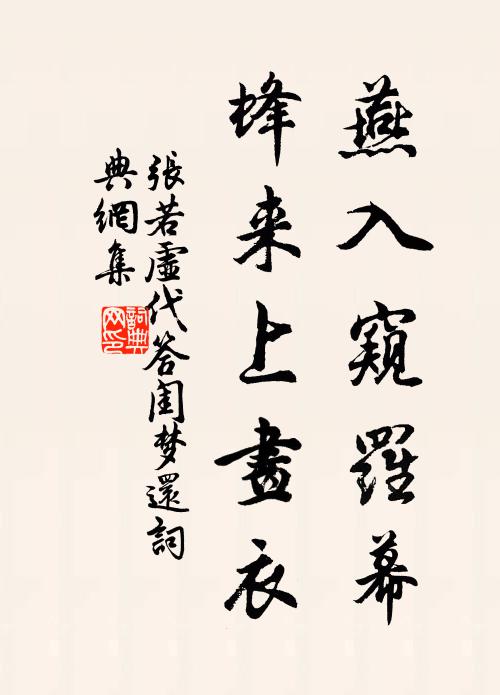 燕入窺羅幕
蜂来上畫衣
張若虛代答闺梦還詞
典網集
詞典
网印